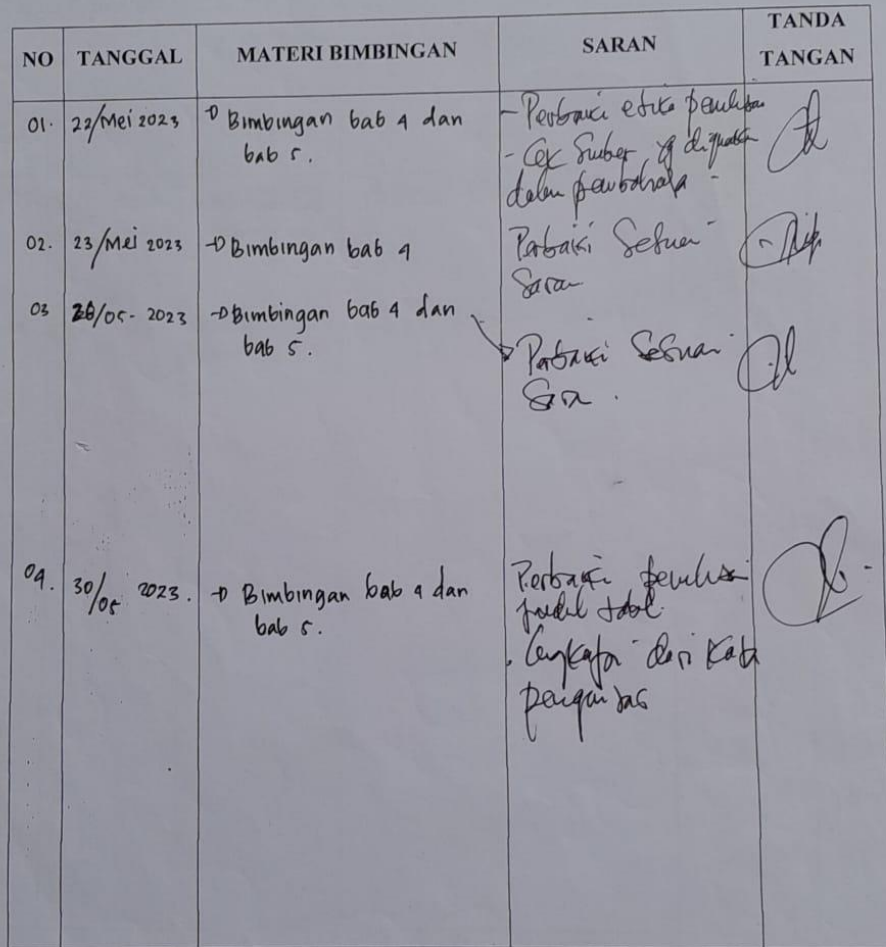 NO TANGGAL MATERI BIMBINGAN SARAN TANDA TANGAN
01. 22/Mei 2023 Bimbingan bab 4 dan
bab 5.
- Perbaiki etika penelitian
- Cek Sumber yg digunakan
dalam pembahasan
02. 23/Mei 2023 Bimbingan bab 4
Perbaiki Sesuai
Saran
03 26/05-2023 Bimbingan bab 4 dan
bab 5.
Perbaiki Sesuai
Saran.
04. 30/05 2023. Bimbingan bab 4 dan
bab 5.
Perbaiki penulisan
judul tabel.
. Lengkapi dari Kata
pengantar